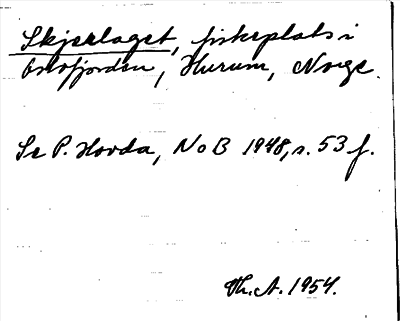 Skjerlaget, fiskeplats i
Oslofjorden, Hurum, Norge.
Se P. Hovda, NoB 1948, s. 53 f.
Th. A. 1954.